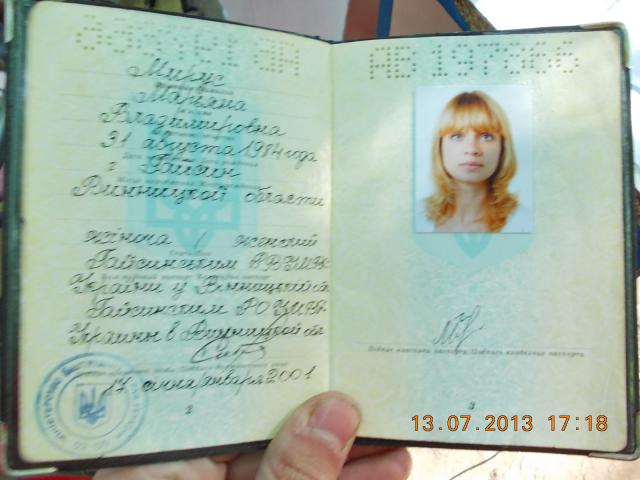 Мирус
Марьяна
Владимировна
31 августа 1984 года
г Гайсин
Винницкой области
жіноча / женский
Гайсинським РВ УМВС
України у Вінницькій
Гайсинским РО УМВД
Украины в Винницкой
17 січня/января 2001
2
Підпис власника паспорта/Подпись владельца паспорта
3
13.07.2013 17:18